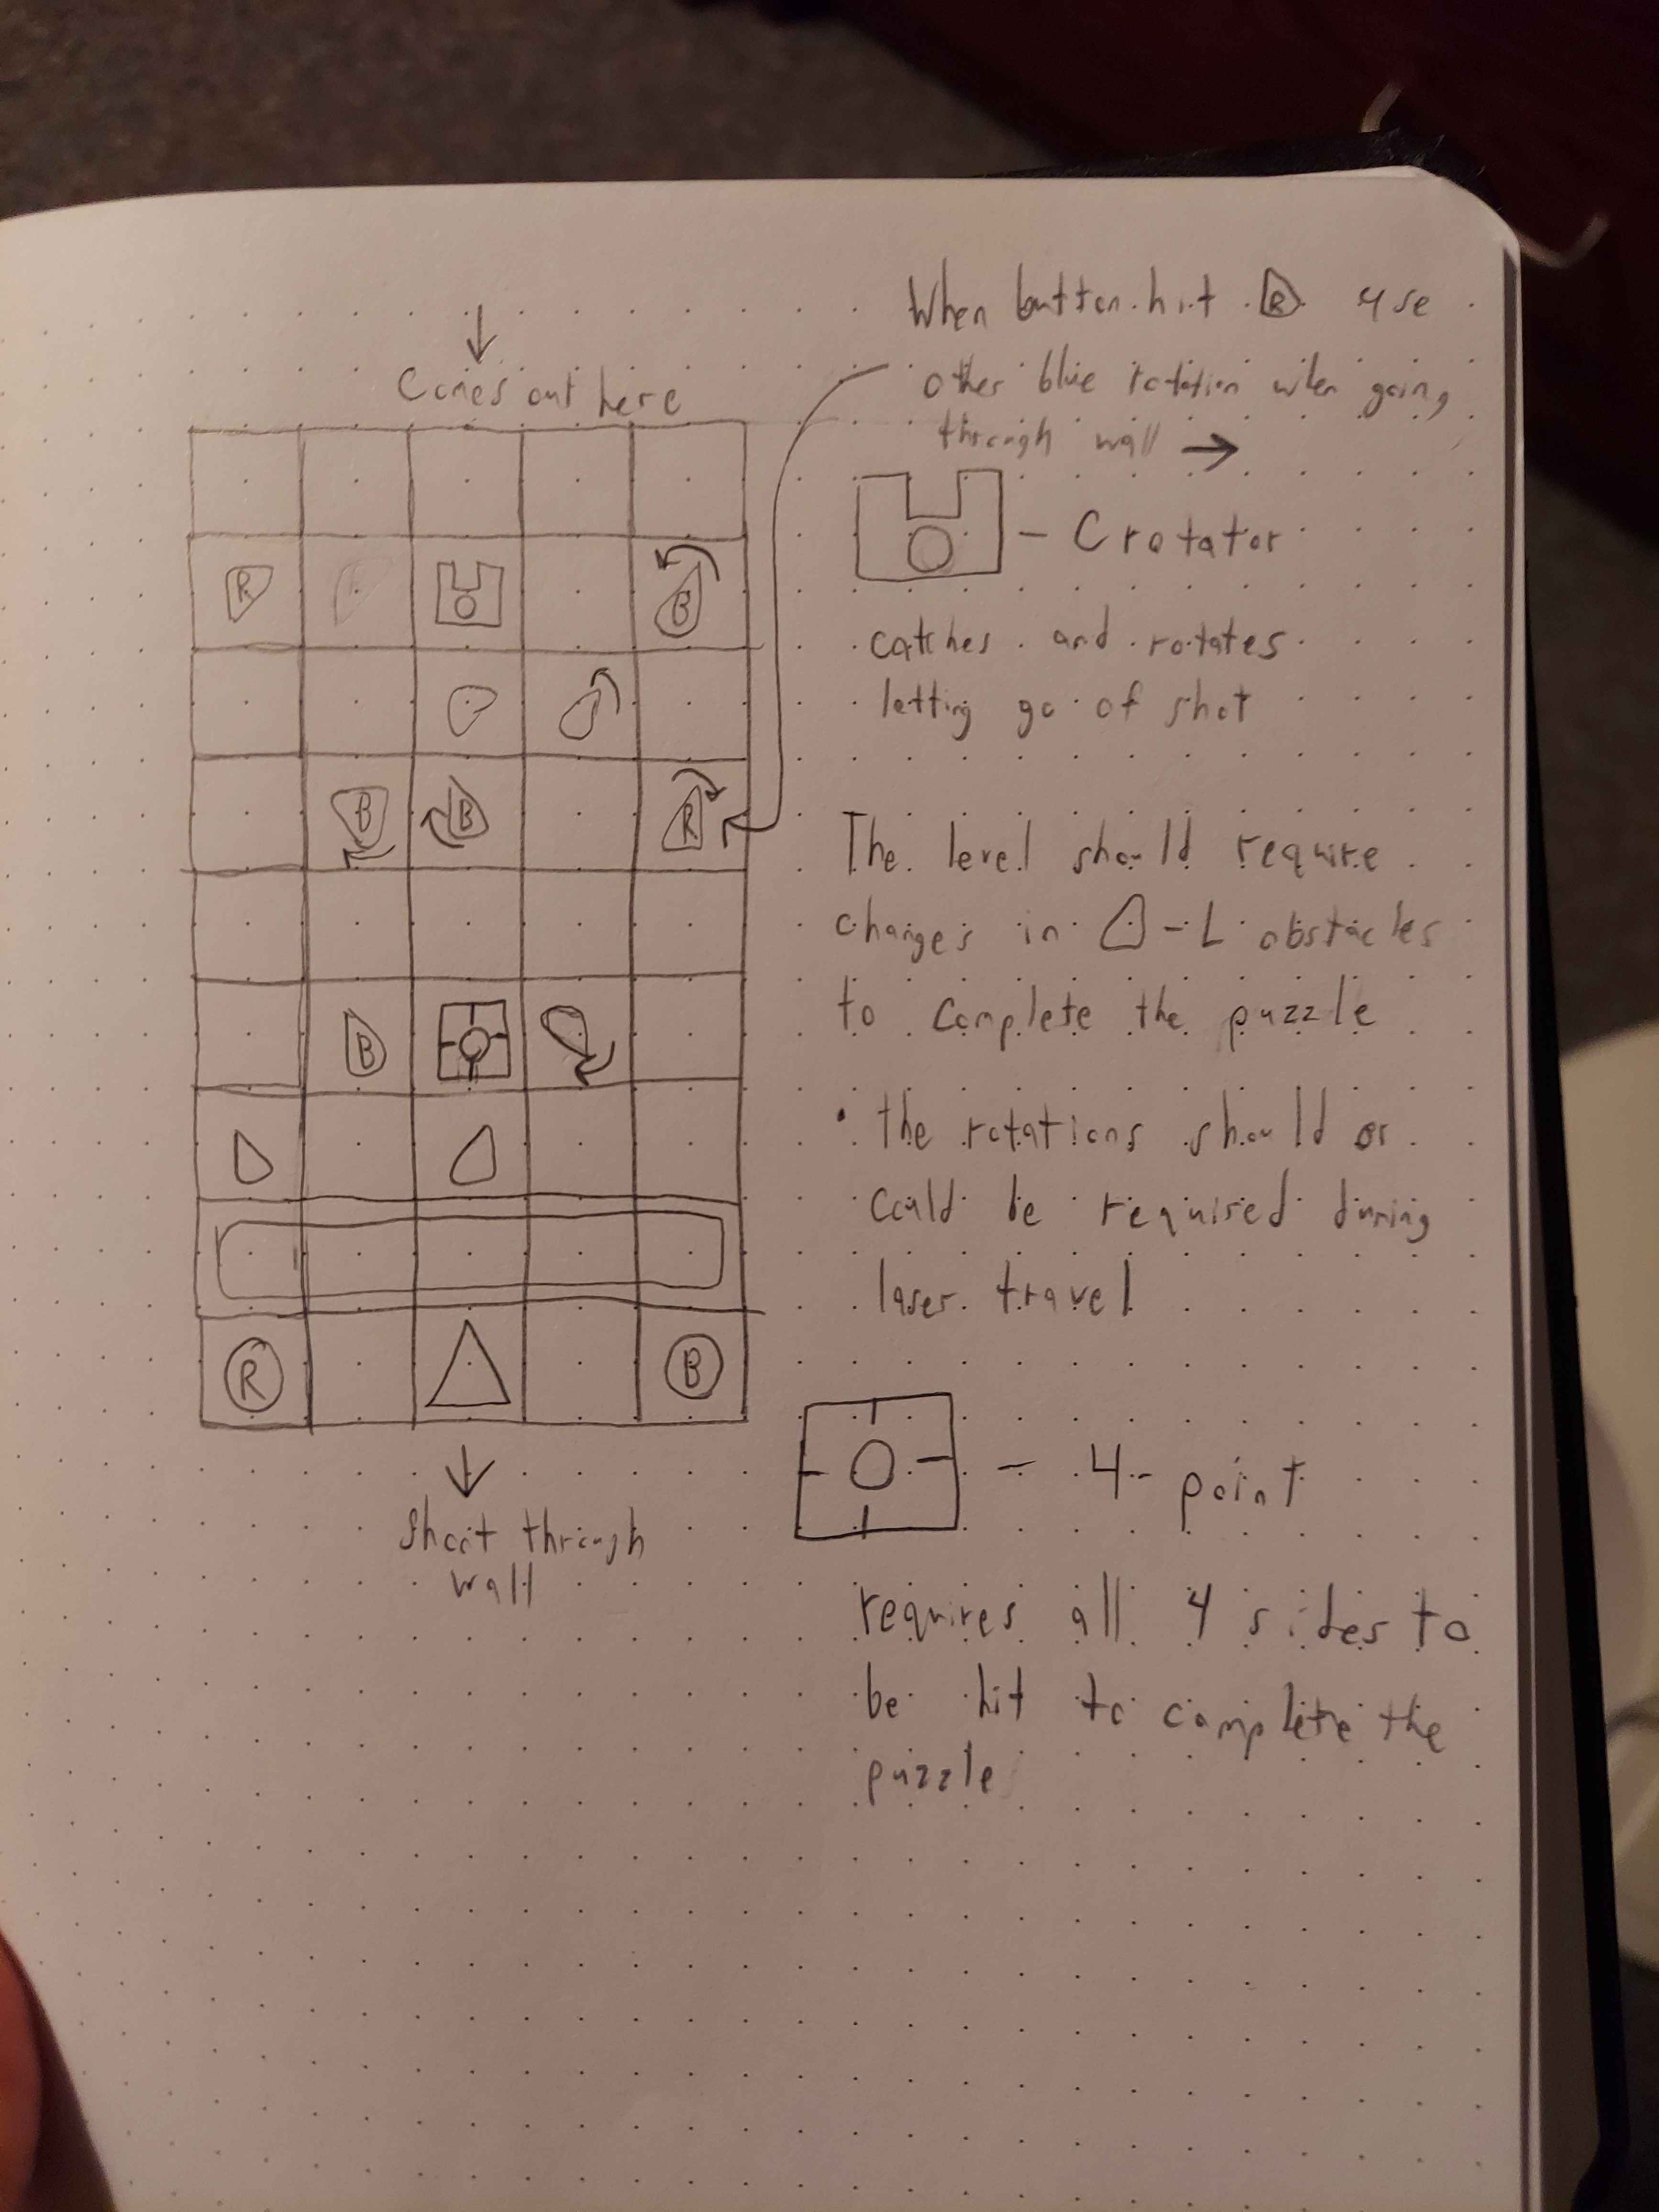 When button hit R use
other blue rotation when going
through wall →
Comes out here
- Crotator
catches and rotates
letting go of shot
R
B
B B R
B
R B
The level should require
changes in - L obstacles
to complete the puzzle
• the rotations should or
could be required during
laser travel
Shoot through
wall
- 4-point
requires all 4 sides to
be hit to complete the
puzzle